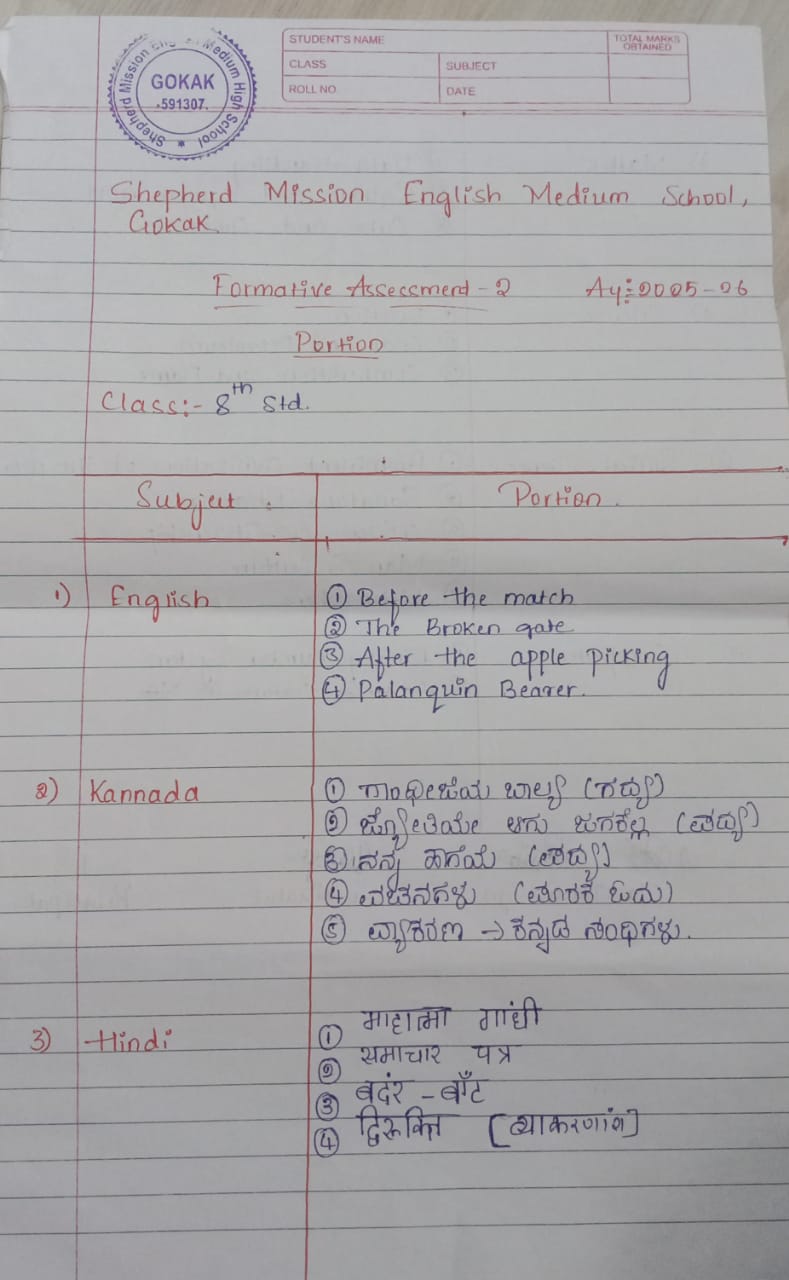 Shepherd Mission English Medium High School
GOKAK
591307.
STUDENT'S NAME
TOTAL MARKS OBTAINED
CLASS
SUBJECT
ROLL NO
DATE
Shepherd Mission English Medium School,
Gokak.
Formative Assessment - 2 Ay:- 2025-26
Portion
Class:- 8th Std.
Subject : Portion
1) English ① Before the match
② The Broken gate
③ After the apple picking
④ Palanquin Bearer.
2) Kannada ① ಗಾಂಧೀಜಿಯ ಬಾಲ್ಯ (ಗದ್ಯ)
② ಜ್ಯೋತಿಯೇ ಆಗು ಜಗಕೆಲ್ಲ (ಪದ್ಯ)
③ ನನ್ನ ಹಾಗೆಯೆ (ಪದ್ಯ)
④ ವಚನಗಳು (ಪೂರಕ ಓದು)
⑤ ವ್ಯಾಕರಣ → ಕನ್ನಡ ಸಂಧಿಗಳು.
3) Hindi ① माहात्मा गांधी
② समाचार पत्र
③ बदंर - बाँट
④ द्विरूक्ति [व्याकरणांश]